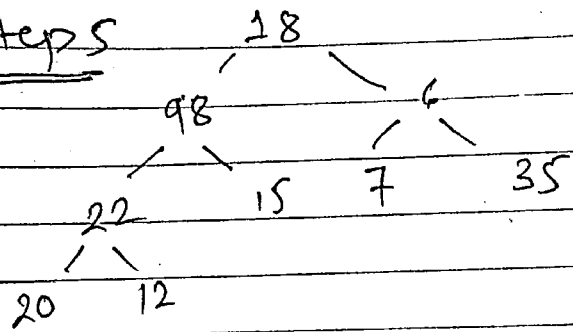 teps 18
98 6
22 15 7 35
20 12